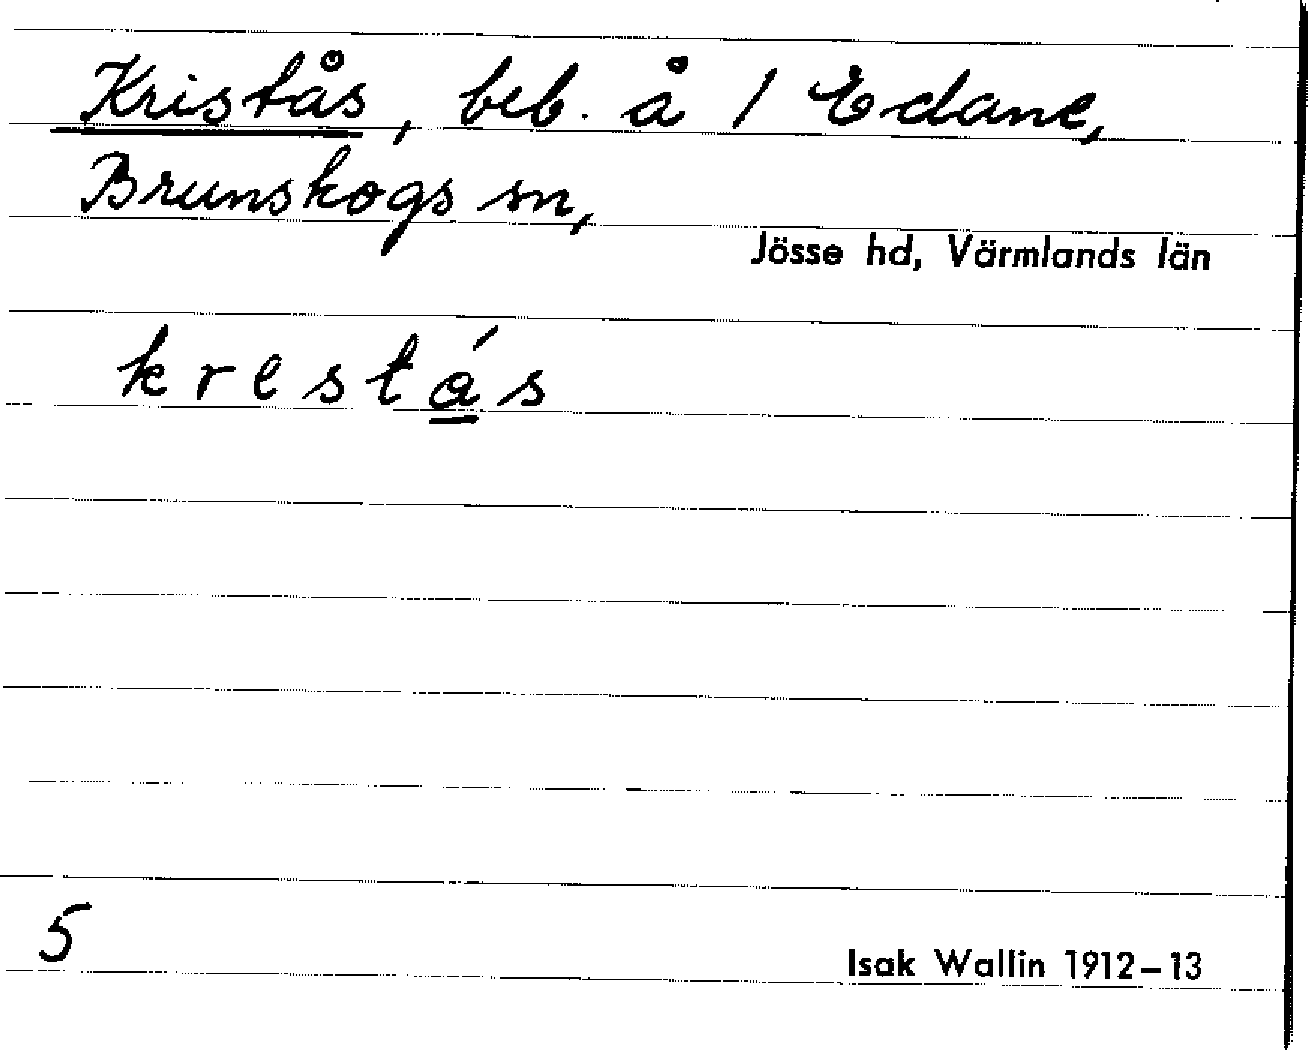 Kristås, beb. å 1 Edane,
Brunskogs sn,
Jösse hd, Värmlands län
krestás
5
Isak Wallin 1912–13